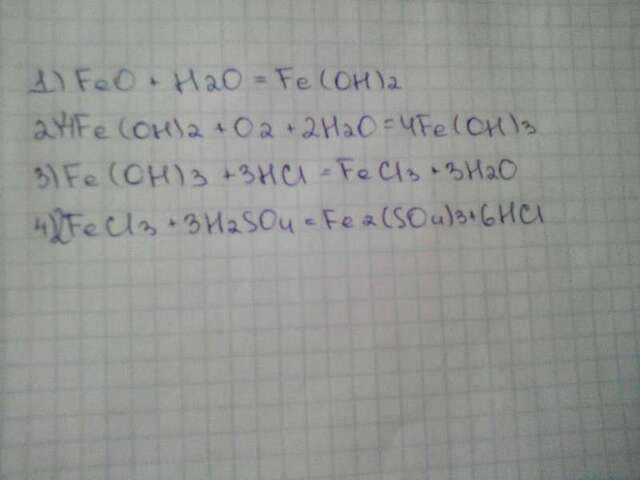 1) FeO + H2O = Fe(OH)2
2) 4Fe(OH)2 + O2 + 2H2O = 4Fe(OH)3
3) Fe(OH)3 + 3HCl = FeCl3 + 3H2O
4) 2FeCl3 + 3H2SO4 = Fe2(SO4)3 + 6HCl